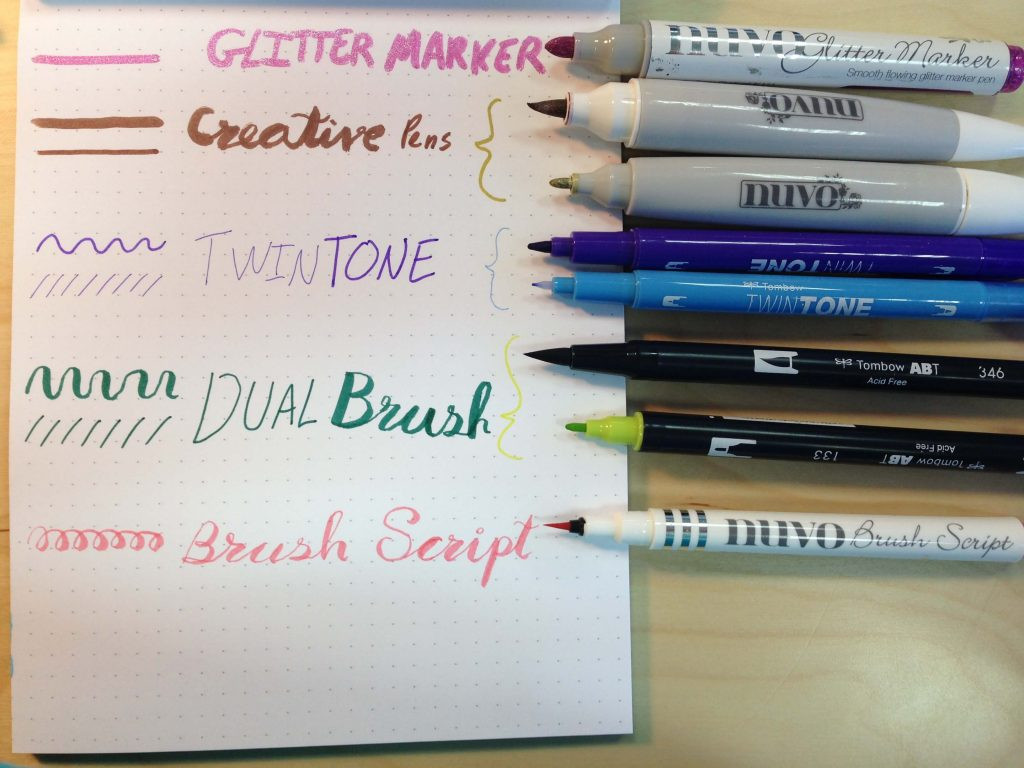 GLITTER MARKER
nuvo Glitter Marker
Smooth flowing glitter marker pen
Creative Pens
nuvo
nuvo
TWINTONE
TWINTONE
Tombow
TWINTONE
DUAL Brush
Tombow ABT 346
Acid Free
Tombow ABT 133
Acid Free
Brush Script
nuvo Brush Script